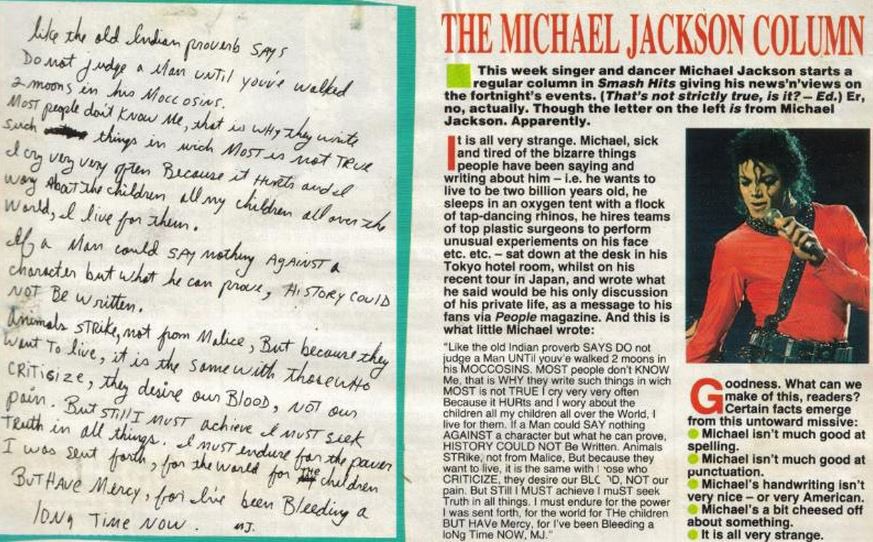 like the old Indian proverb SAYS
Do not judge a Man until you've walked
2 moons in his Moccosins.
Most people don't Know Me, that is WHY they write
such things in wich MOST is not TRUE
I cry very very often Because it Hurts and I
wory About the children all my children all over the
World, I live for them.
If a Man could SAY nothing AGAINST a
character but what he can prove, HISTORY COULD
NOT Be Written.
Animals STRike, not from Malice, But because they
Want To live, it is the same with those WHO
CRITISIZE, they desire our BLOOD, NOT our
pain. But STILL I MUST achieve I MUST seek
Truth in all things. I must endure for the power
I was sent forth, for the World for THE children
BUT HAVE Mercy, for I've been Bleeding a
long Time Now. MJ.
THE MICHAEL JACKSON COLUMN
This week singer and dancer Michael Jackson starts a
regular column in Smash Hits giving his news'n'views on
the fortnight's events. (That's not strictly true, is it? – Ed.) Er,
no, actually. Though the letter on the left is from Michael
Jackson. Apparently.
It is all very strange. Michael, sick
and tired of the bizarre things
people have been saying and
writing about him – i.e. he wants to
live to be two billion years old, he
sleeps in an oxygen tent with a flock
of tap-dancing rhinos, he hires teams
of top plastic surgeons to perform
unusual experiements on his face
etc. etc. – sat down at the desk in his
Tokyo hotel room, whilst on his
recent tour in Japan, and wrote what
he said would be his only discussion
of his private life, as a message to his
fans via People magazine. And this is
what little Michael wrote:
"Like the old Indian proverb SAYS DO not
judge a Man UNTil youv'e walked 2 moons in
his MOCCOSINS. MOST people don't KNOW
Me, that is WHY they write such things in wich
MOST is not TRUE I cry very very often
Because it HURts and I wory about the
children all my children all over the World, I
live for them. If a Man could SAY nothing
AGAINST a character but what he can prove,
HISTORY COULD NOT Be Written. Animals
STRike, not from Malice, But because they
want to live, it is the same with those who
CRITICIZE, they desire our BLOOD, NOT our
pain. But STill I MUST achieve I muST seek
Truth in all things. I must endure for the power
I was sent forth, for the world for THe children
BUT HAVe Mercy, for I've been Bleeding a
loNg Time NOW, MJ."
Goodness. What can we
make of this, readers?
Certain facts emerge
from this untoward missive:
Michael isn't much good at
spelling.
Michael isn't much good at
punctuation.
Michael's handwriting isn't
very nice – or very American.
Michael's a bit cheesed off
about something.
It is all very strange.